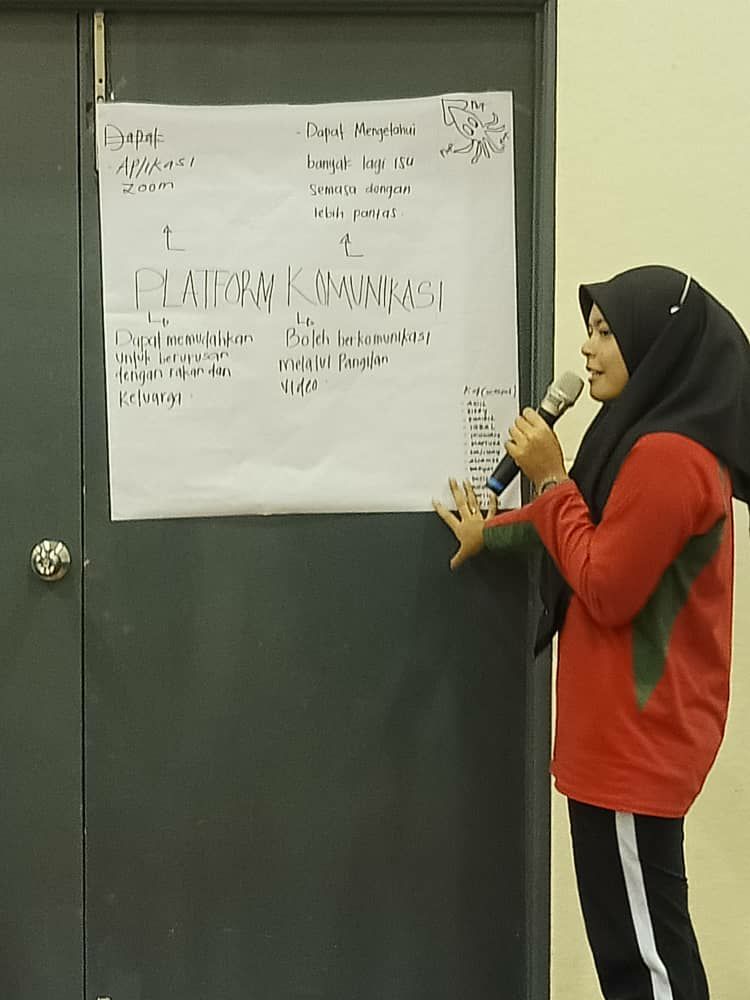 Dapat
- Aplikasi
Zoom
- Dapat Mengetahui
banyak lagi isu
semasa dengan
lebih pantas.
PLATFORM KOMUNIKASI
Dapat memudahkan
untuk berurusan
dengan rakan dan
Keluarga.
Boleh berkomunikasi
melalui Pangilan
Video.